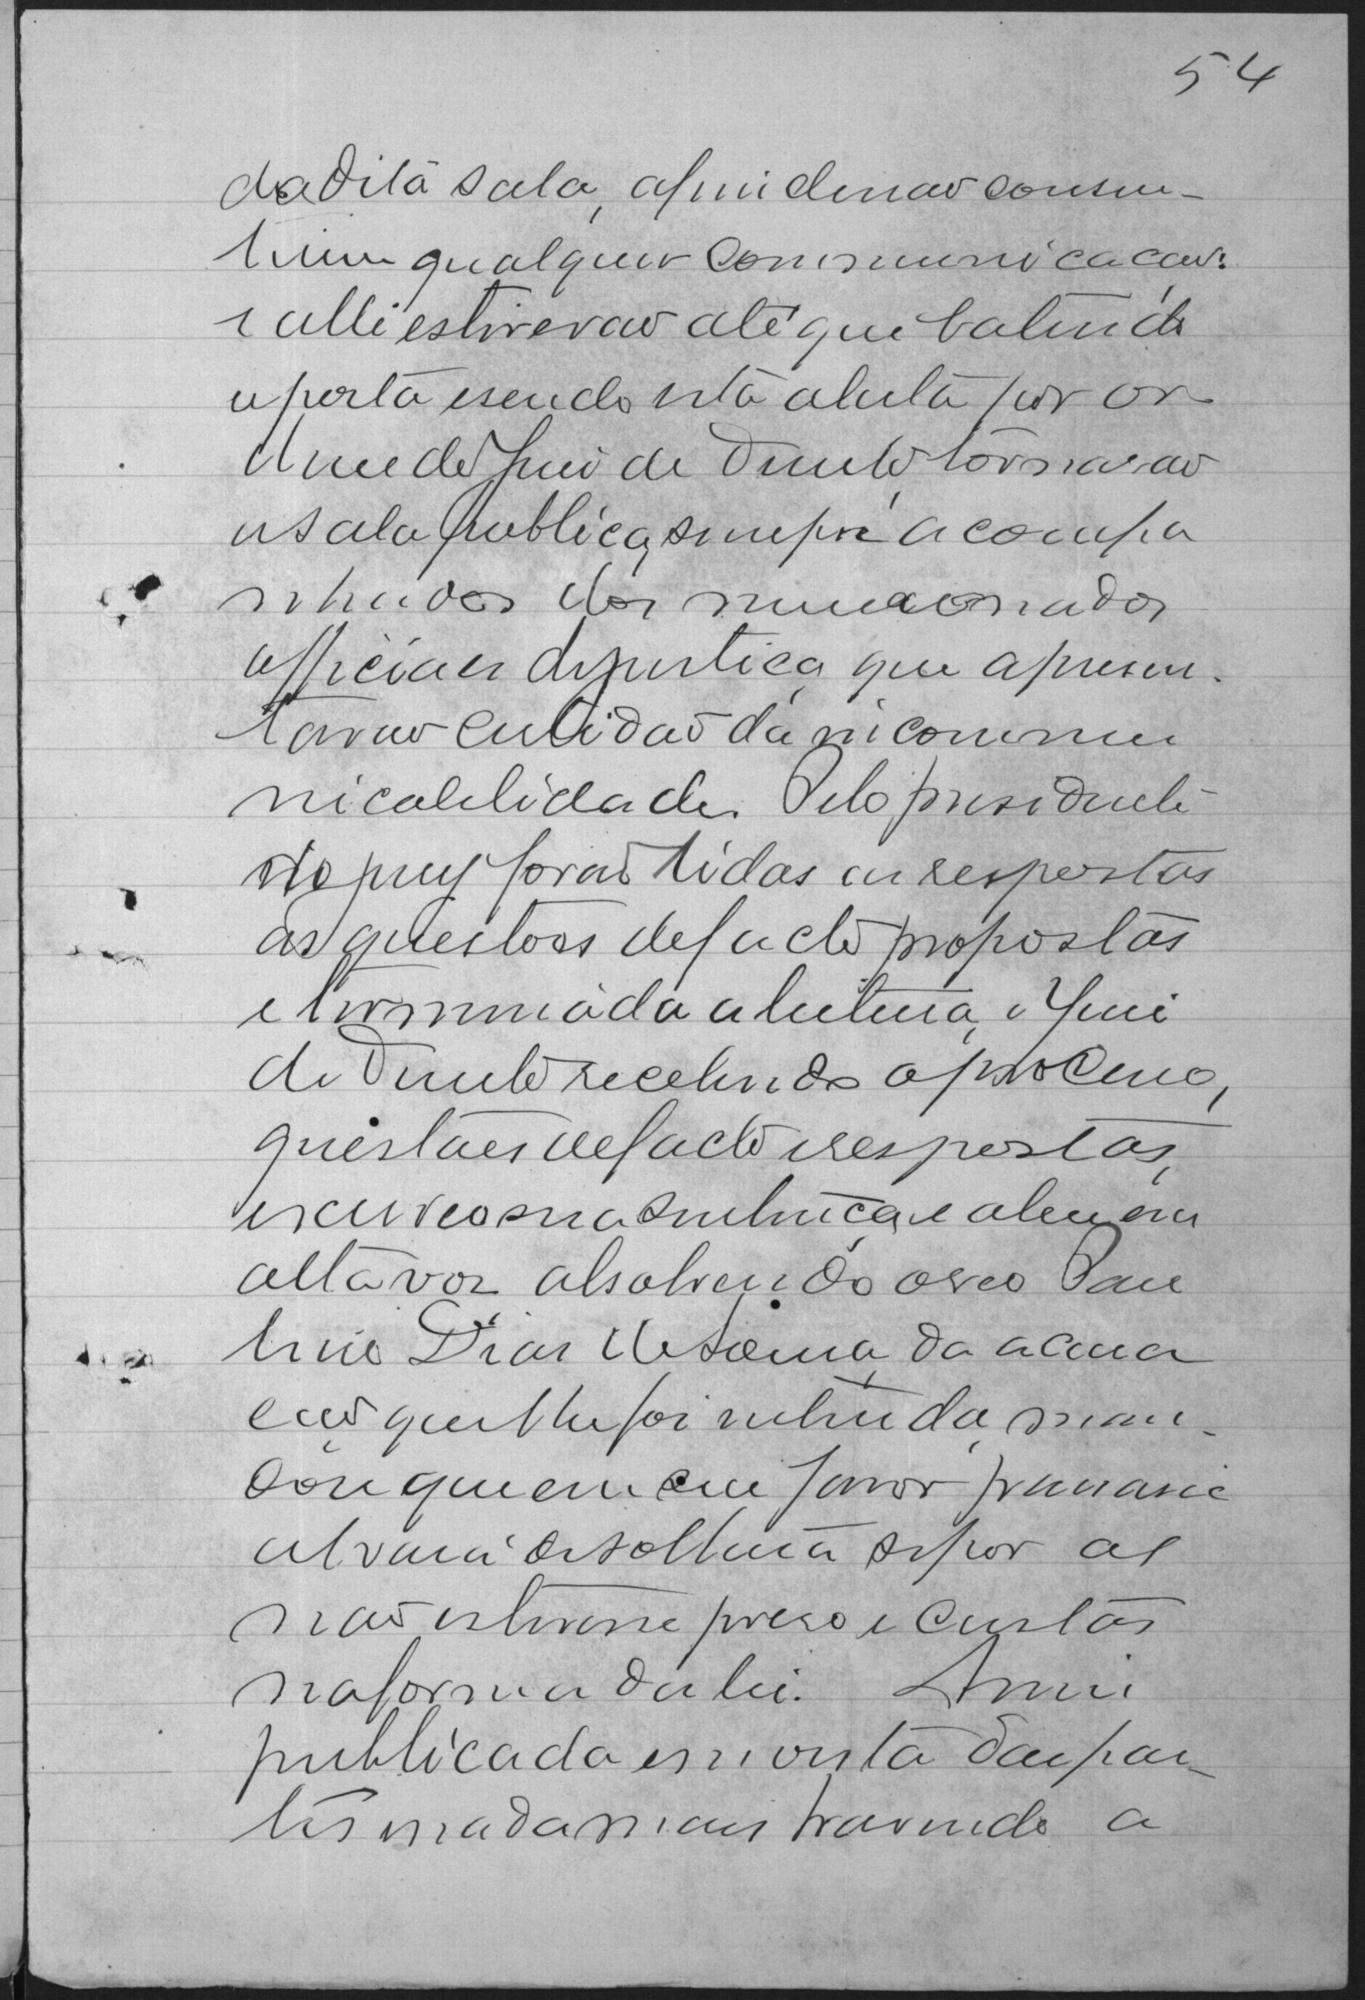 54
da dita sala, afim de nao consen-
tirem qualquer communicaçao:
e alli estiverao até que batendo
a porta e sendo esta aberta por or
dem do Juiz de Direito tornarao
a sala publica, sempre acompa
nhados dos mencionados
officiaes de justiça, que apresen-
tarao certidao da incommu
nicabilidade. Pelo presidente
do jury forao lidas as respostas
as questoes de facto propostas
e terminada a leitura, o Juiz
de Direito recebendo o processo,
questões de facto e respostas,
escreveo sua sentença e a leu em
alta voz absolvendo o reo Pau
lino Dias de Souza, da accusa
çao que lhe foi intentada, man-
dou que em seu favor passasse
alvará de soltura se por al
nao estivesse preso e custas
na forma da lei. Assim
publicada em vista das par-
tes nada mais havendo a